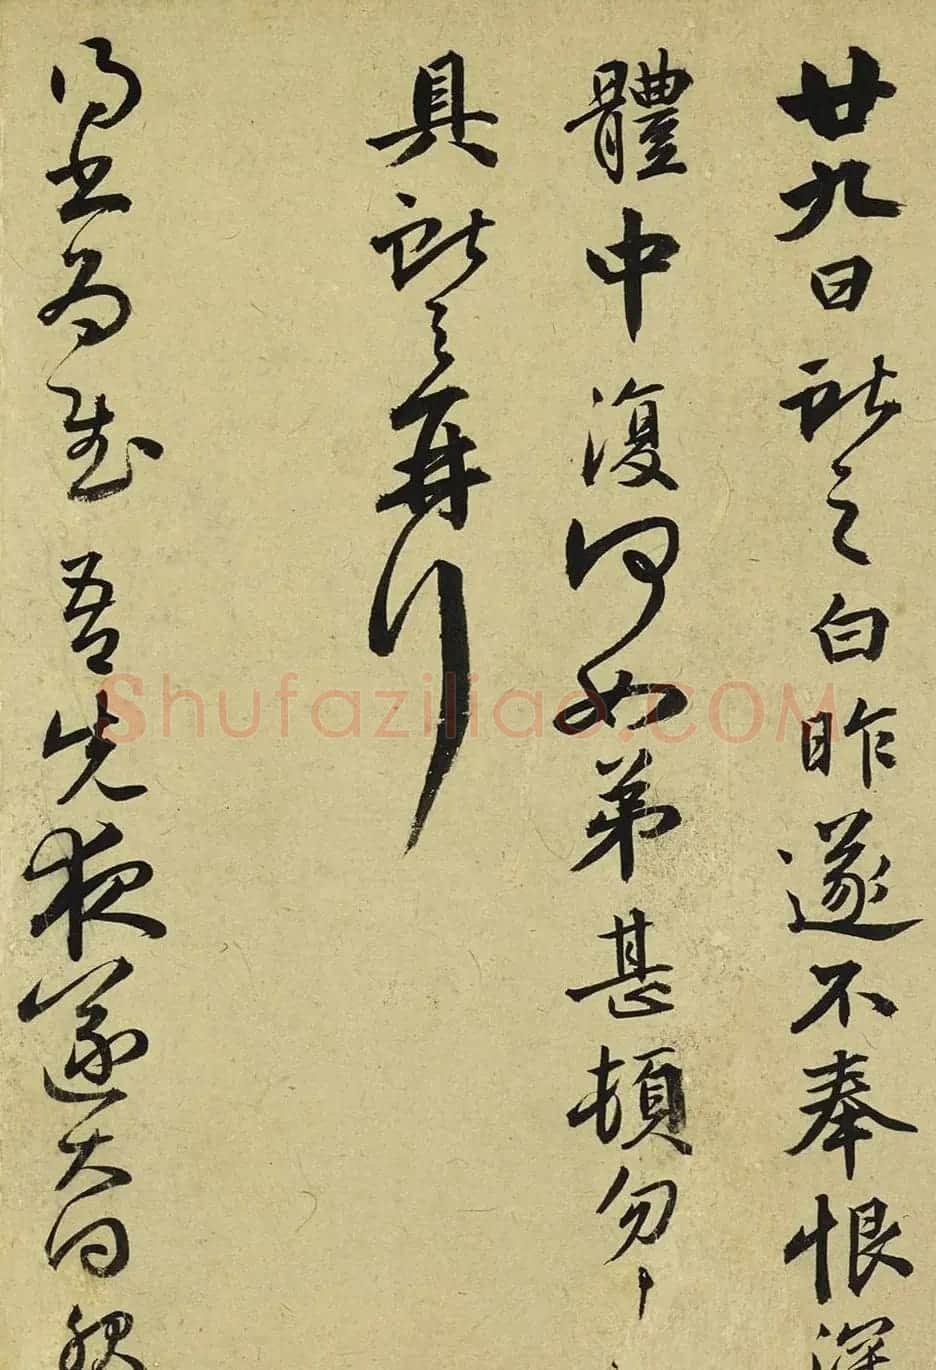 廿九日献之白昨遂不奉恨深
體中復何如弟甚頓勿〻
具献之再拜
得書為慰吾先夜遂大
Shufaziliao.COM